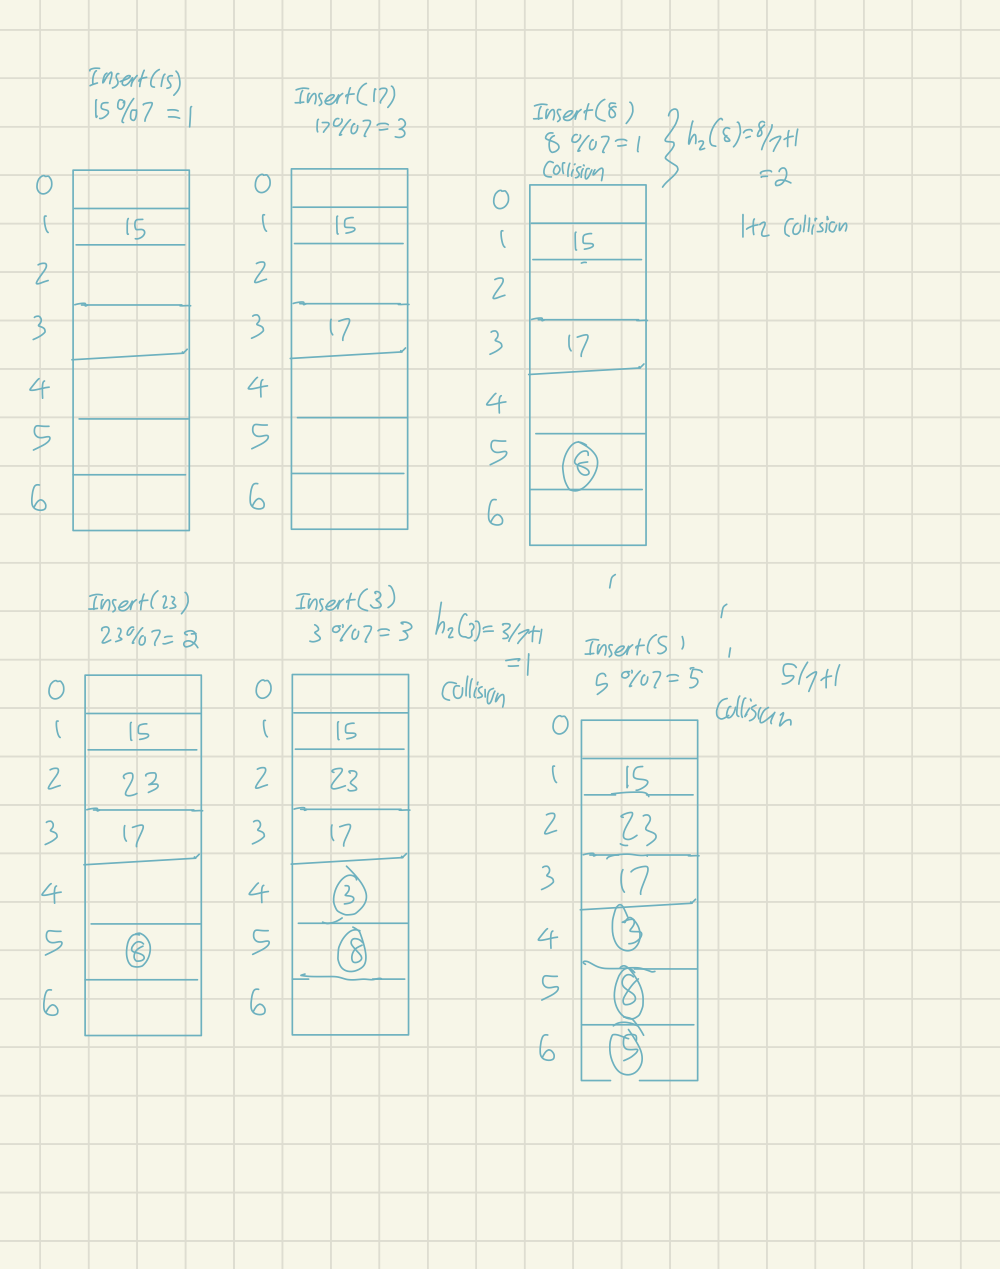 Insert(15)
15%7 = 1
0
1 15
2
3
4
5
6
Insert(17)
17%7 = 3
0
1 15
2
3 17
4
5
6
Insert(8)
8 %7 = 1
Collision
h2(8) = 8/7+1
= 2
1+2 Collision
0
1 15
2
3 17
4
5 8
6
Insert(23)
23%7 = 2
0
1 15
2 23
3 17
4
5 8
6
Insert(3)
3 %7 = 3
h2(3) = 3/7+1
= 1
Collision
0
1 15
2 23
3 17
4 3
5 8
6
Insert(5)
5 %7 = 5
5/7+1
Collision
0
1 15
2 23
3 17
4 3
5 8
6 5